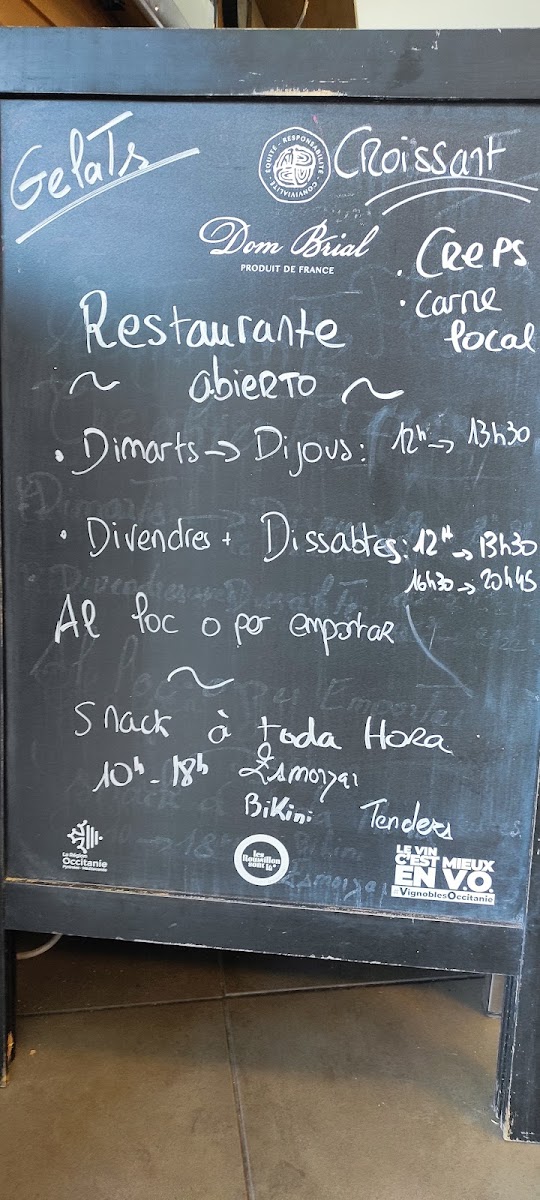 Gelats
EQUITÉ - RESPONSABILITÉ - CONVIVIALITÉ
Croissant
Dom Brial
PRODUIT DE FRANCE
. Creps
. Carne
local
Restaurante
~ abierto ~
. Dimarts -> Dijous: 12h -> 13h30
. Divendres + Dissabtes: 12h -> 13h30
16h30 -> 20h45
Al loc o per emportar
~
Snack à toda Hora
10h - 18h
Bikini
Tenders
La Région
Occitanie
Pyrénées - Méditerranée
les
Roussillon
sont là
LE VIN
C'EST MIEUX
EN V.O.
#VignoblesOccitanie